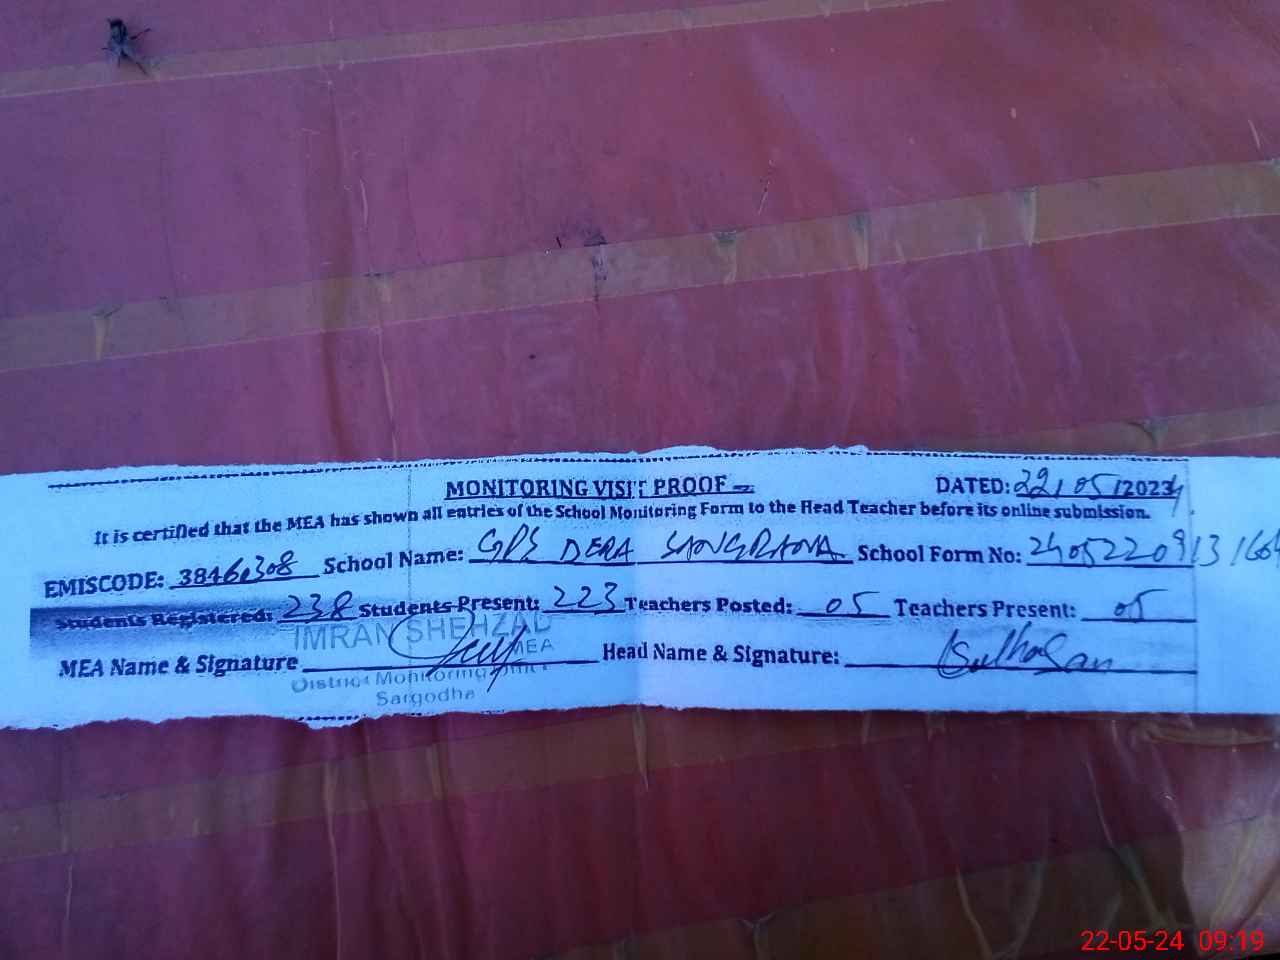 MONITORING VISIT PROOF
DATED: 22/05/2024
It is certified that the MEA has shown all entries of the School Monitoring Form to the Head Teacher before its online submission.
EMISCODE: 38460308 School Name: GPS DERA SANGRANA School Form No:
Students Registered: 238 Students Present: 223 Teachers Posted: 05 Teachers Present: 05
IMRAN SHEHZAD
MEA
MEA Name & Signature Head Name & Signature:
District Monitoring
Sargodha
22-05-24 09:19